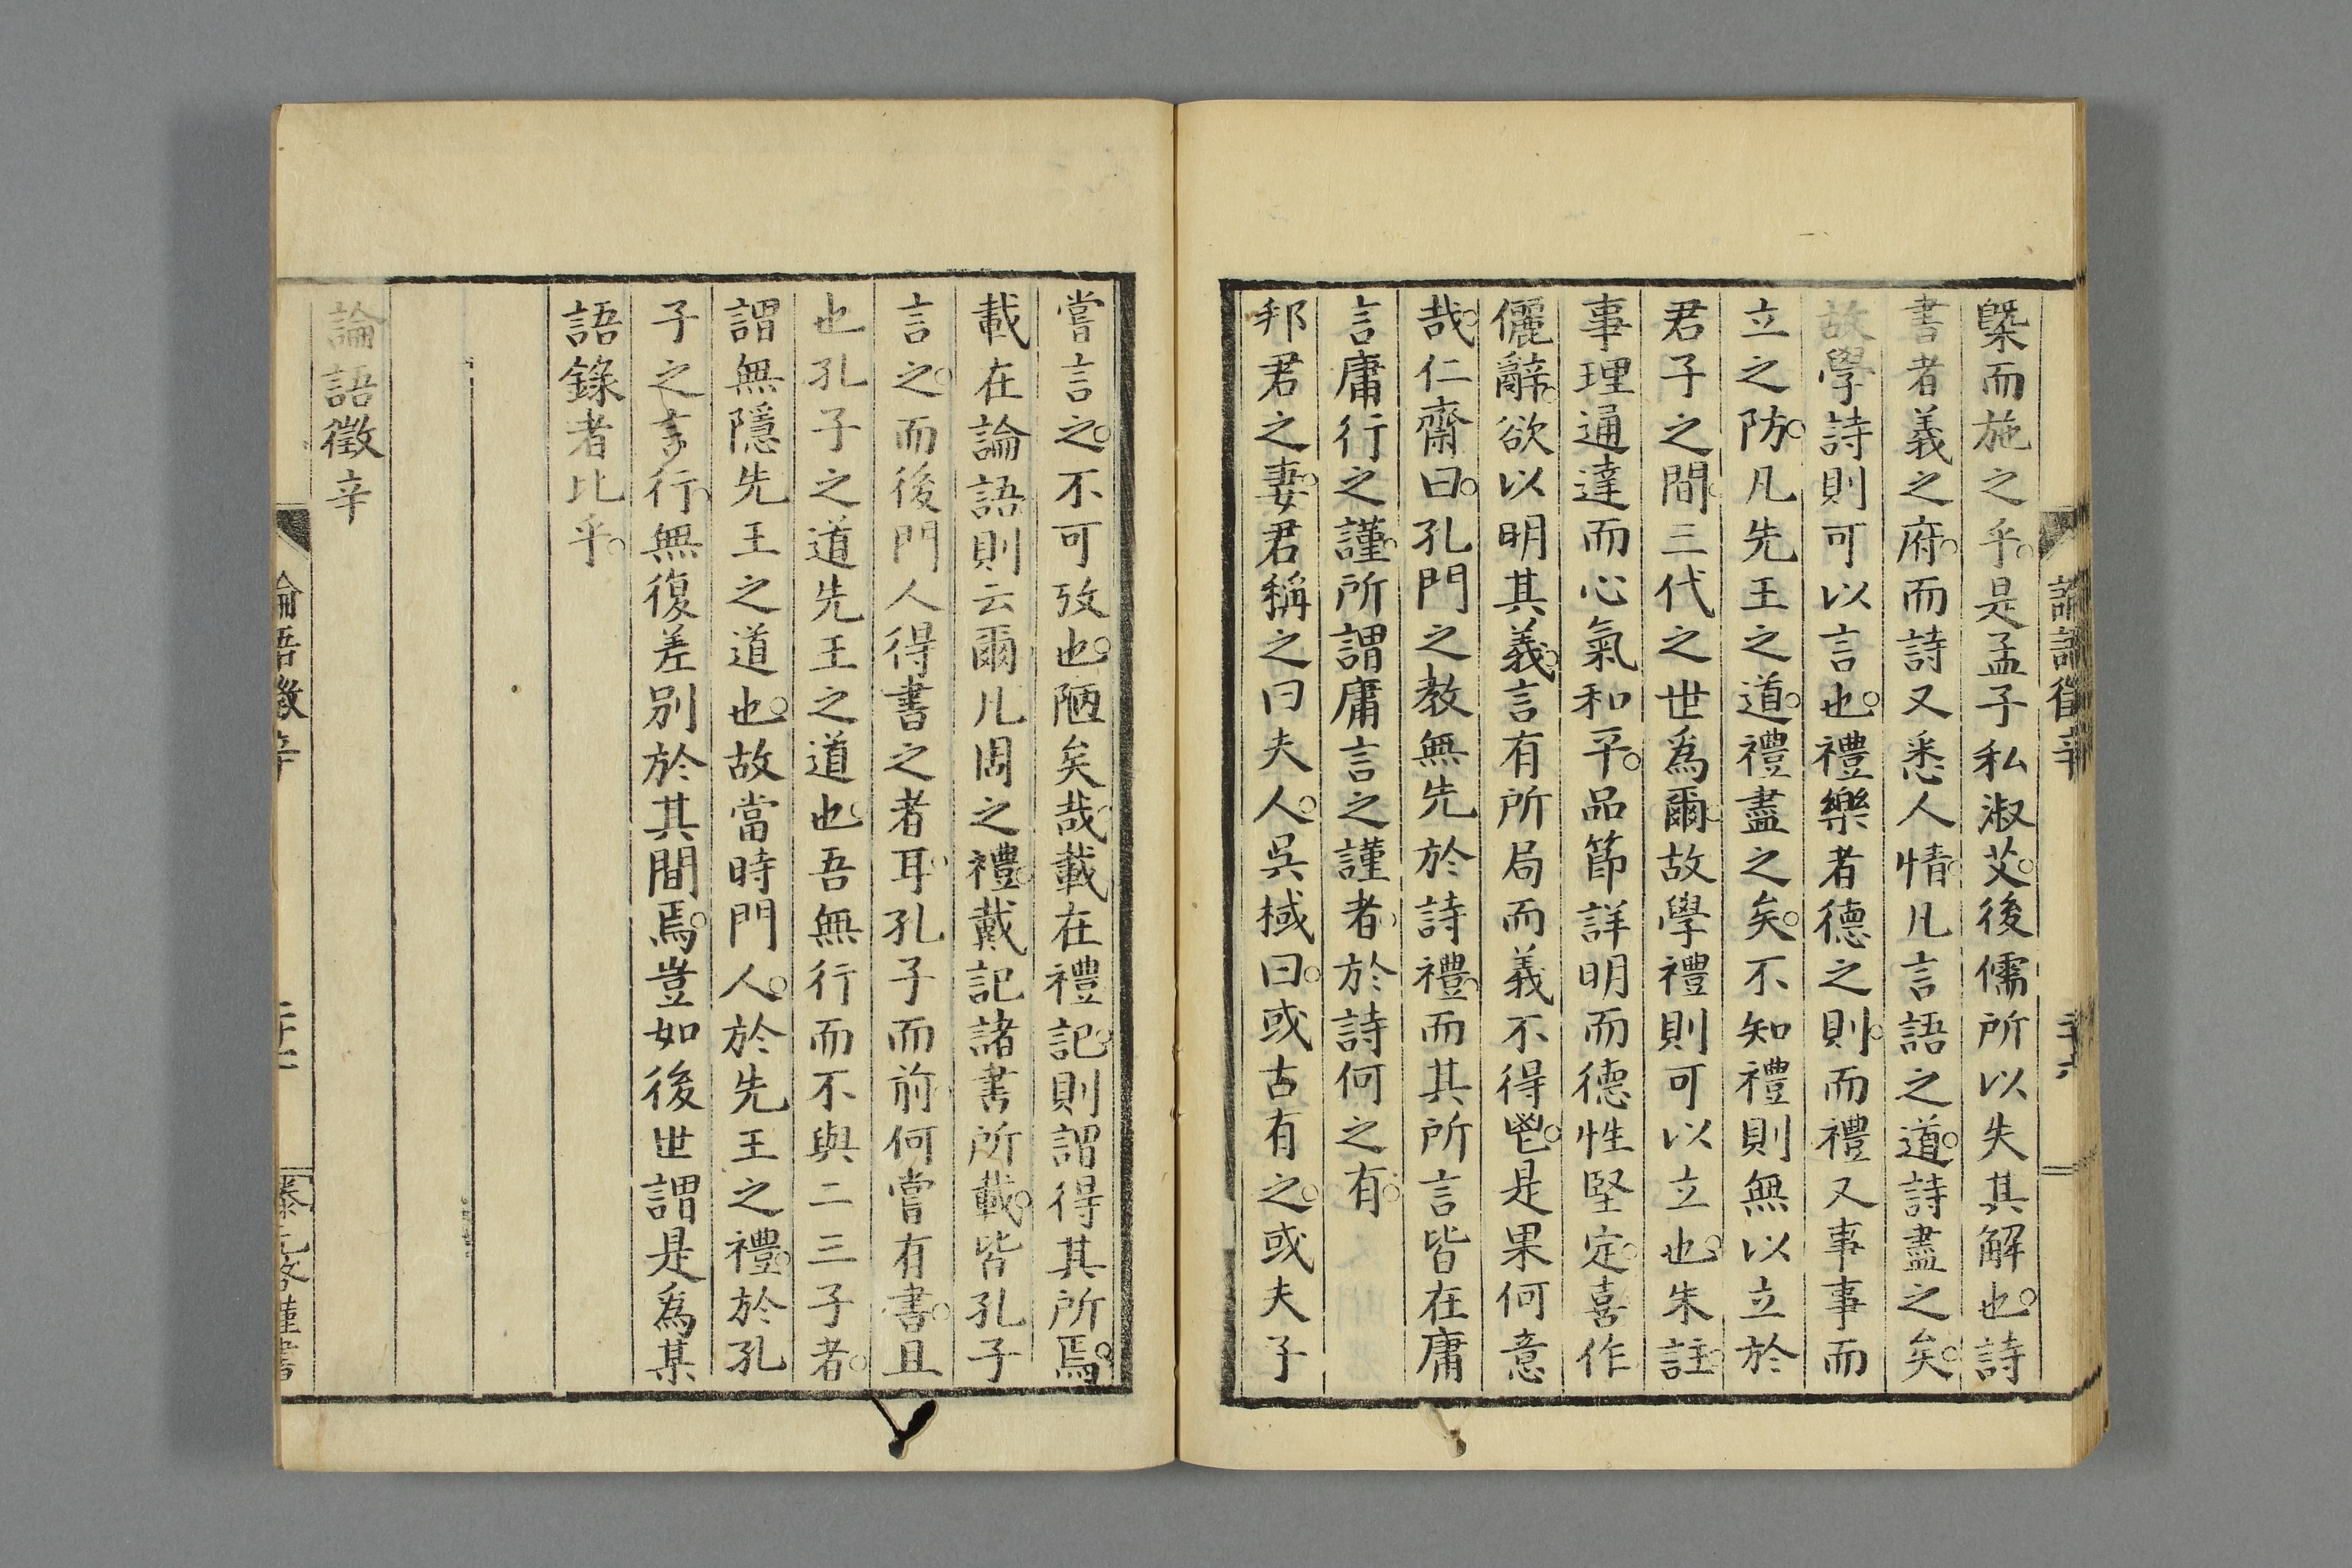 槩而施之乎。是孟子私淑艾。後儒所以失其解也。詩
書者義之府。而詩又悉人情。凡言語之道。詩盡之矣。
故學詩則可以言也。禮樂者德之則。而禮又事事而
立之防。凡先王之道。禮盡之矣。不知禮則無以立於
君子之間。三代之世爲爾。故學禮則可以立也。朱註。
事理通達而心氣和平。品節詳明而德性堅定。喜作
儷辭。欲以明其義。言有所局而義不得鬯。是果何意
哉。仁齋曰。孔門之教無先於詩禮。而其所言皆在庸
言庸行之謹。所謂庸言之謹者。於詩何之有。
邦君之妻。君稱之曰夫人。吳棫曰。或古有之。或夫子
嘗言之。不可攷也。陋矣哉。載在禮記。則謂得其所焉。
載在論語則云爾。凡周之禮。戴記諸書所載。皆孔子
言之。而後門人得書之者耳。孔子而前。何嘗有書。且
也孔子之道先王之道也。吾無行而不與二三子者。
謂無隱先王之道也。故當時門人。於先王之禮。於孔
子之言行。無復差別於其間焉。豈如後世謂是爲某
語錄者比乎。
論語徵辛
論語徵辛